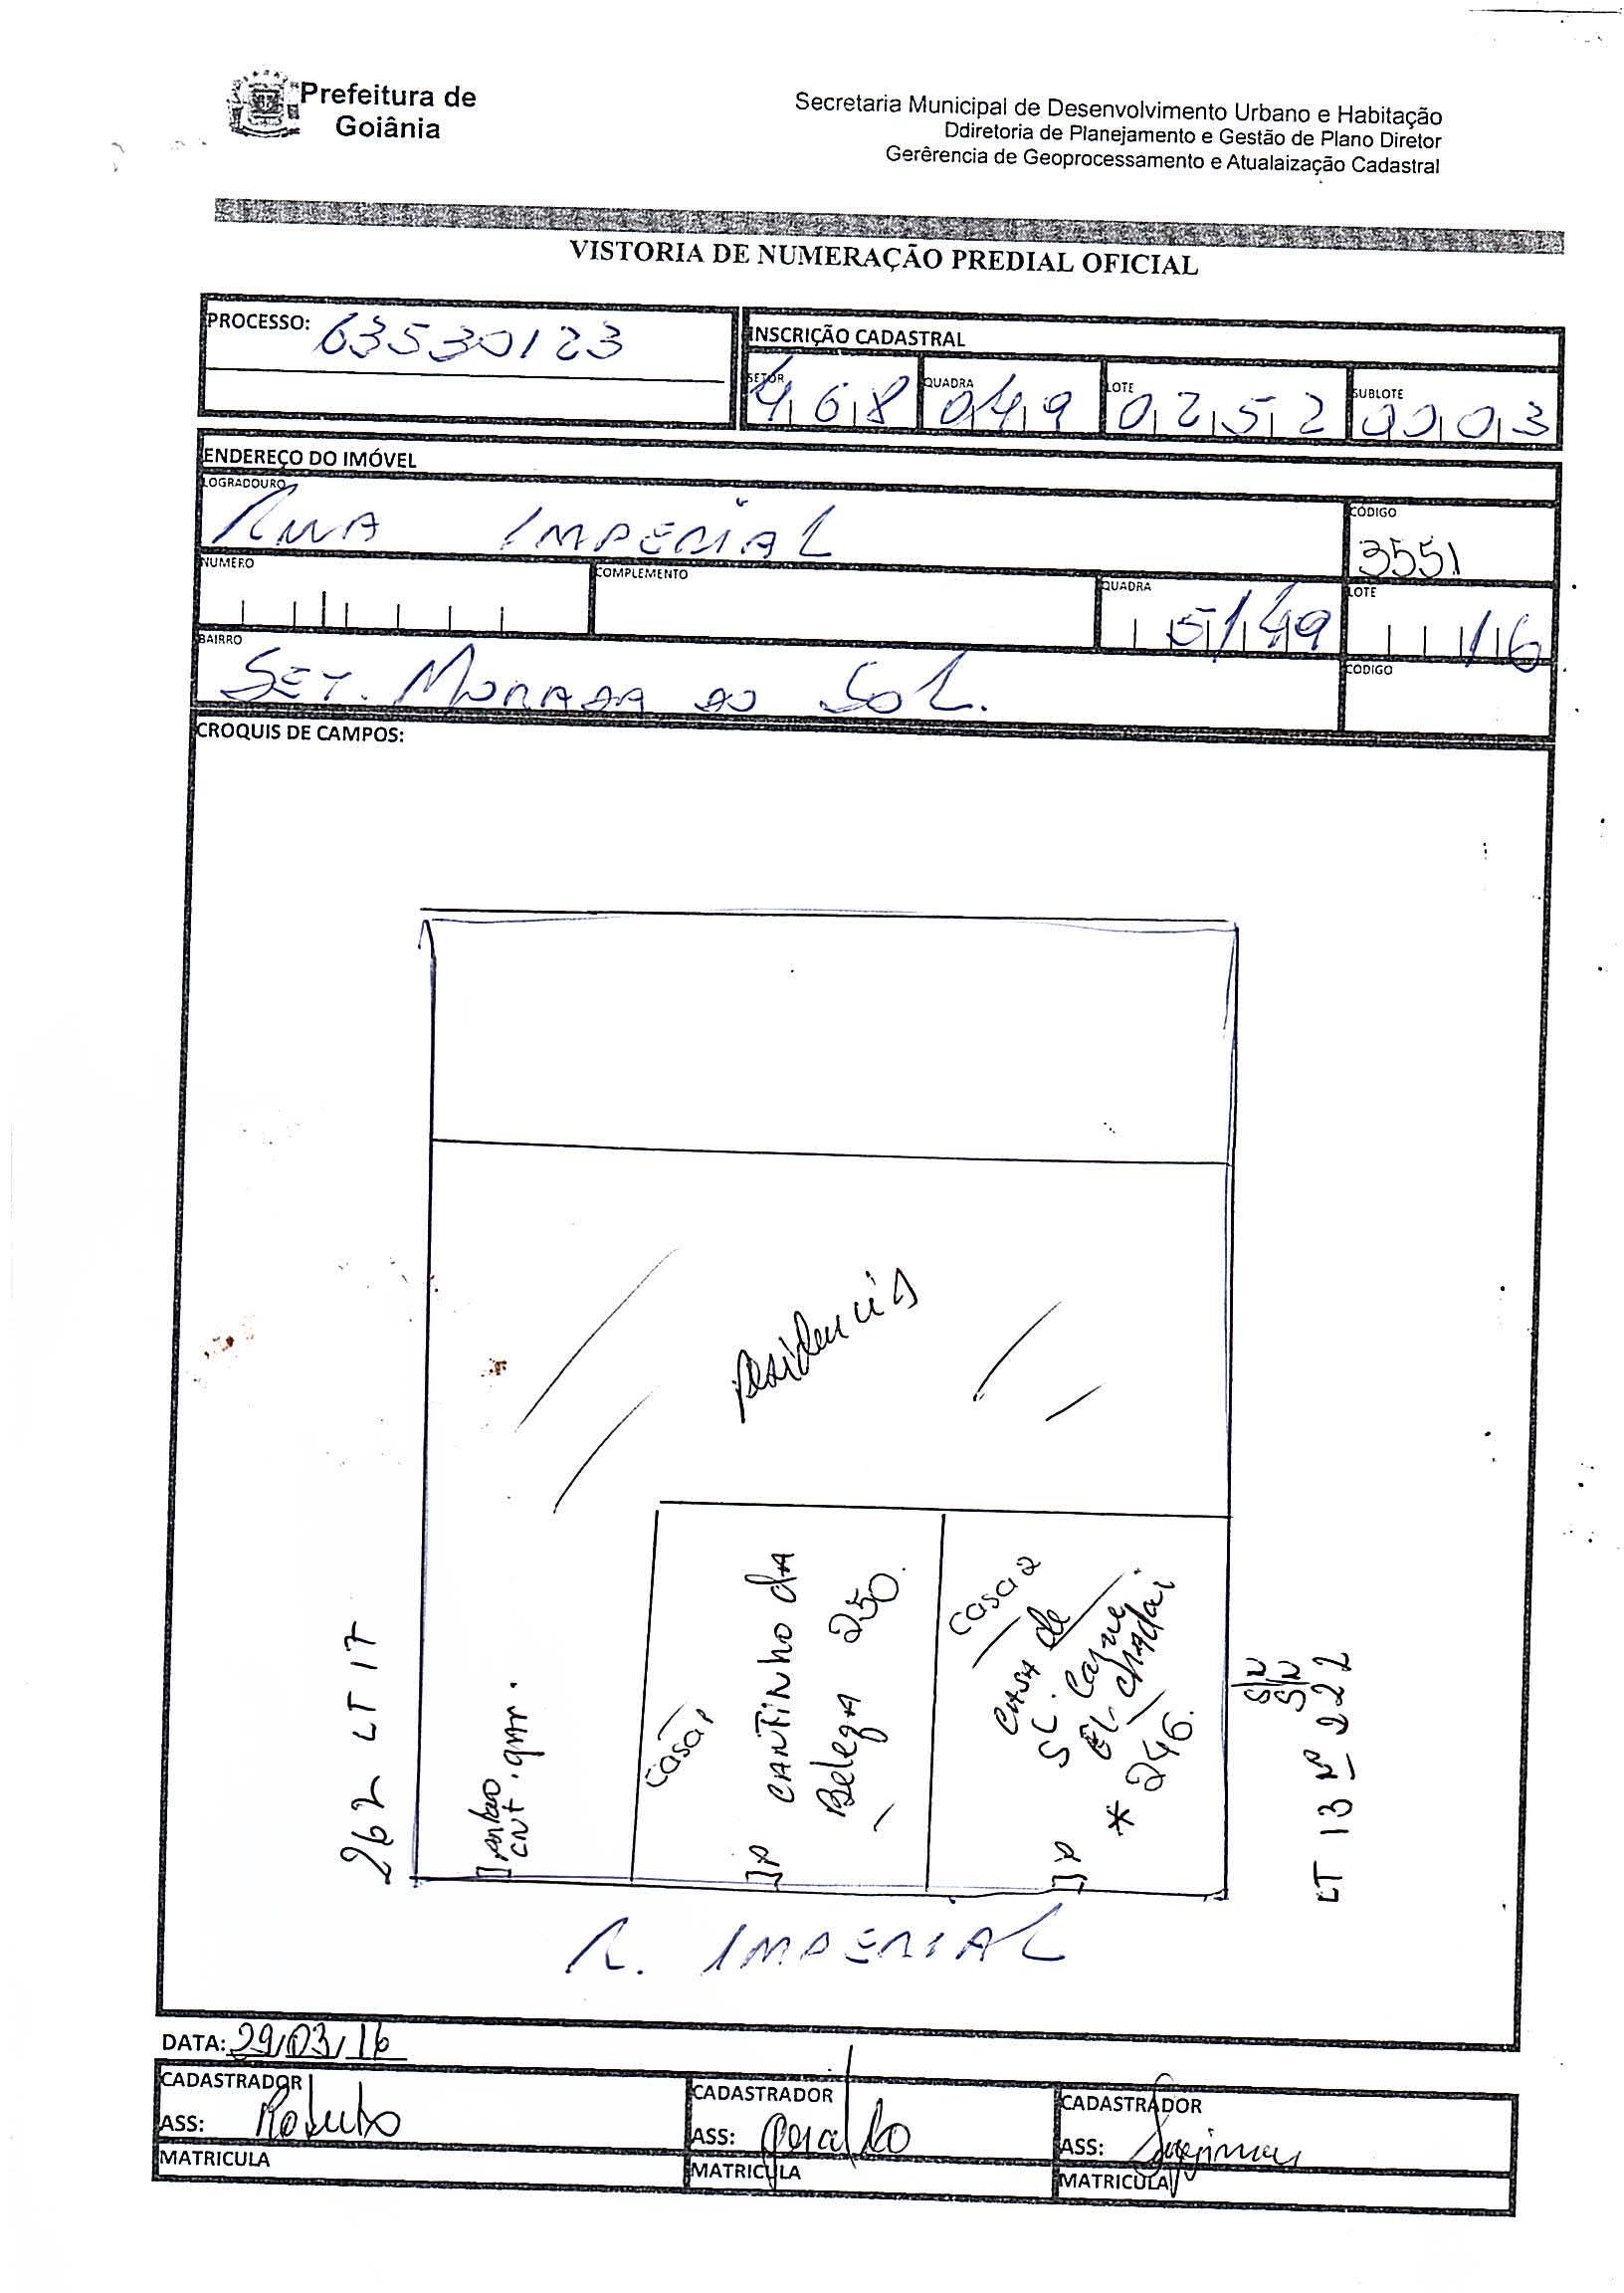 Prefeitura de
Goiânia
Secretaria Municipal de Desenvolvimento Urbano e Habitação
Ddiretoria de Planejamento e Gestão de Plano Diretor
Gerêrencia de Geoprocessamento e Atualaização Cadastral
VISTORIA DE NUMERAÇÃO PREDIAL OFICIAL
PROCESSO: 63530123
INSCRIÇÃO CADASTRAL
SETOR 468 QUADRA 049 LOTE 0252 SUBLOTE 0003
ENDEREÇO DO IMÓVEL
LOGRADOURO RUA IMPERIAL
CÓDIGO 3551
NUMERO
COMPLEMENTO
QUADRA 5/49
LOTE 16
BAIRRO SET. MORADA DO SOL.
CODIGO
CROQUIS DE CAMPOS:
Residencia
262 LT 17
CNT. gar.
Casa 1
CANTINHO dA
Beleza 250.
Casa 2
CASA de
Carne
EL. Chadai
* 246.
S/N
S/N
LT 13 Nº 222
P
P
R. IMPERIAL
DATA: 29/03/16
CADASTRADOR
ASS: Roberto
MATRICULA
CADASTRADOR
ASS: Geraldo
MATRICULA
CADASTRADOR
ASS:
MATRICULA